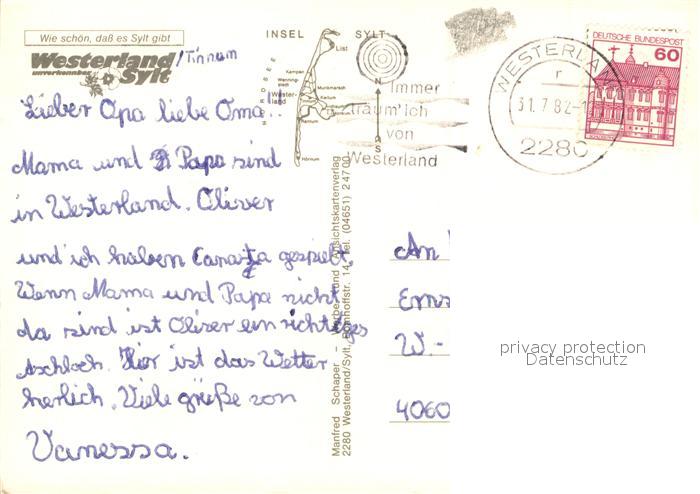 Wie schön, daß es Sylt gibt
Westerland /Tinnum
unverkennbar Sylt
INSEL SYLT
NORDSEE
List
Kampen
Wenning-
stedt
Munkmarsch
Wester-
land
Keitum
Rantum
Hörnum
N
S
Immer
träum' ich
von
Westerland
WESTERLAND
r
31.7.82-1
2280
DEUTSCHE BUNDESPOST
60
Lieber Opa liebe Oma!
Mama und Papa sind
in Westerland. Oliver
und ich haben Canasta gespielt.
Wenn Mama und Papa nicht
da sind ist Oliver ein richtiges
Aschloch. Hier ist das Wetter
herlich. Viele grüße von
Vanessa.
Manfred Schaper - Werbe- und Ansichtskartenverlag
2280 Westerland/Sylt, Bomhoffstr. 14, Tel. (04651) 24700
An
Erns
W.-
4060
privacy protection
Datenschutz